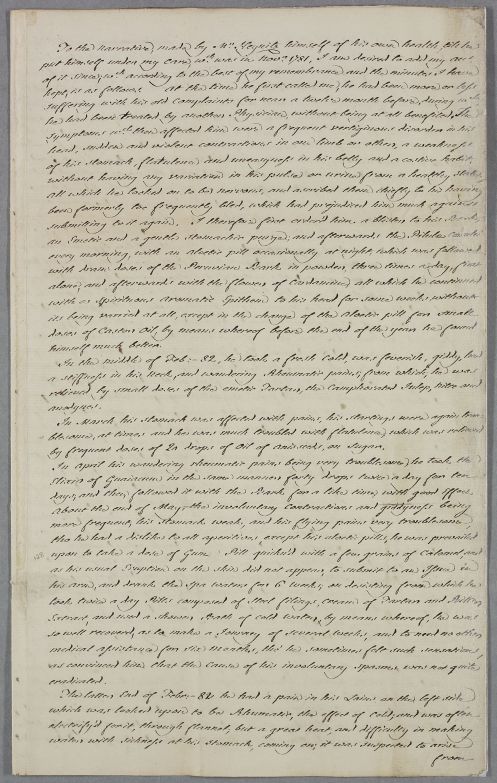 To the narrative, made by Mr. himself of his own health, till he
put himself under my care, wch. was in Novr. 1781, I am desired to add my acct.
of it since, wch. according to the best of my remembrance and the minutes I have
kept, is as follows. at the time he first called me, he had been more or less
suffering with his old complaints for near a twelve month before, during wch.
he had been treated, by another Physician, without being at all benefited. The
symptoms wch. then affected him were a frequent vertiginous disorder in his
head, sudden and violent contractions in one limb or other, a weakness
of his stomach, flatulence and uneasyness in his belly and a costive habit,
without having any variation in his pulse or urine from a healthy state,
all which he looked on to be nervous, and ascribed them chiefly to his having
been formerly too frequently bled, which had prejudiced him much against
submitting to it again. I therefore first ordered him, a blister to his Back,
an Emetic and a gentle stomachic purge, and afterwards the Pilulae
every morning, with an aloetic pill occasionally at night, which was followed
with dram doses of the Peruvian Bark in powder, three times a day, first
alone, and afterwards with the flowers of Cardamine, all which he continued
with a Spirituous aromatic Epithem to his head for some weeks without
its being varied at all, except in the change of the aloetic pill for small
doses of Castor Oil, by means whereof before the end of the year he found
himself much better.
In the middle of Feb:- 82, he took a fresh cold, was feverish, giddy, had
a stiffness in his neck, and wandering Rheumatic pains, from which, he was
relieved by small doses of the emetic Tartar, the Camphorated Julep, nitre and
anodynes.
In March his stomach was affected with pains, his startings were again trou-
blesome, at times, and he was much troubled with flatulence, which was relieved
by frequent doses of 20 drops of Oil of aniseeds, on sugar.
In April his wandering rheumatic pains being very troublesome, he took, the
Elixir of Guaiacum in the same manner forty drops twice a day for ten
days, and then followed it with the Bark for a like time with good effect.
About the end of May the involuntary Contractions and giddyness being
more frequent, his stomach weak, and his flying pains very troublesome,
tho he had a dislike to all aperitives except his aloetic pills, he was prevailed
upon to take a dose of Gum Pill quicken'd with a few grains of Calomel, and
as his usual Eruption on the skin did not appear, to submit to an Issue in
his arm, and drank the Spa waters for 6 weeks, on desisting from which he
took twice a day Pills composed of Steel filings, cream of Tartar and
Extract, and used a shower Bath of cold water, by means whereof, he was
so well recovered, as to make a Journey of several weeks, and to need no other
medical assistance for six months, tho' he sometimes felt such sensations,
as convinced him that the cause of his involuntary Spasms, was not quite
eradicated.
The latter End of Febr:- 82 he had a pain in his Loins on the left side
which was looked upon to be Rhumatic, the effect of cold, and was often
electrify'd for it, through flannel, but a great heat, and difficulty in making
water with sickness at his stomach, coming on, it was suspected to arise
from